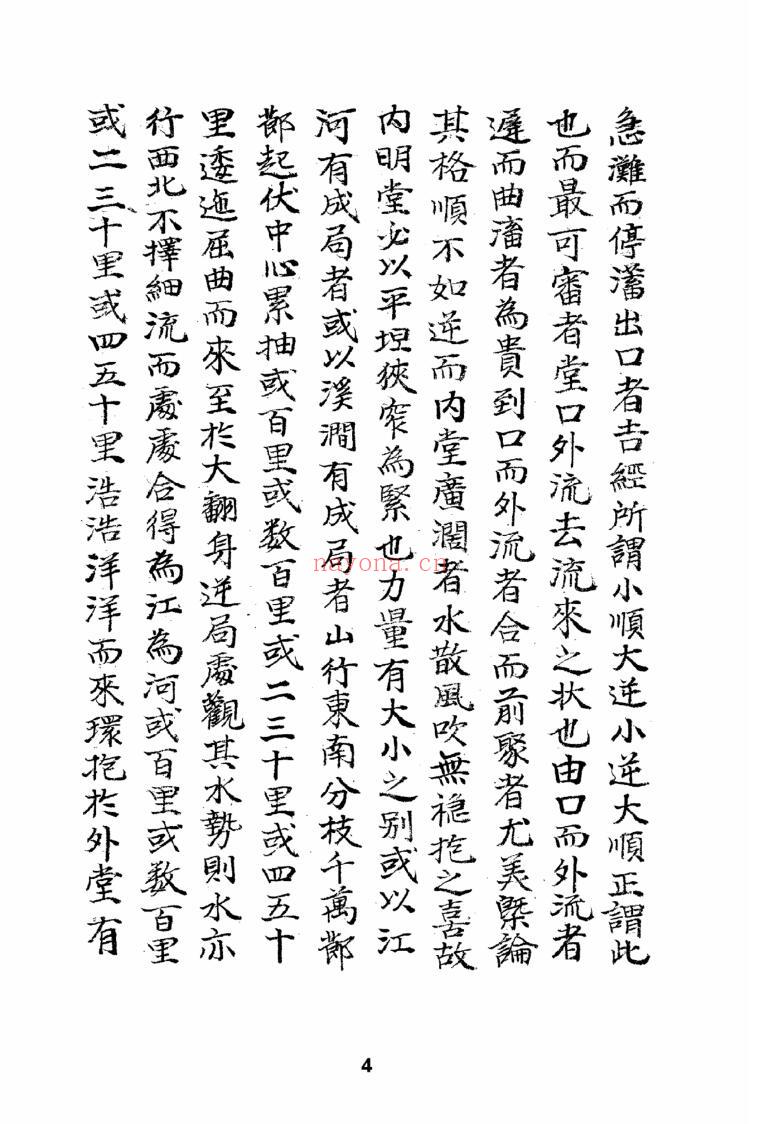 急灘而停瀦出口者吉經所謂小順大逆小逆大順正謂此
也而最可審者堂口外流去流來之状也由口而外流者
遲而曲瀦者為貴到口而外流者合而前聚者尤美槩論
其格順不如逆而內堂廣濶者水散風吹無穏抱之喜故
内明堂必以平坦狹窄為緊也力量有大小之别或以江
河有成局者或以溪澗有成局者山行東南分枝千萬
起伏中心累抽或百里或数百里或二三十里或四五十
里逶迤屈曲而來至扵大翻身逆局處觀其水勢則水亦
行西北不擇細流而處處合得為江為河或百里或数百里
或二三十里或四五十里浩浩洋洋而來環抱扵外堂有
nayona.cn
4